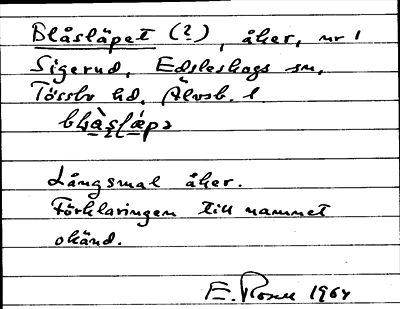 Blåsläpet (?), åker, nr 1
Sigerud, Edsleskogs sn,
Tössbo hd, Älvsb. l
Långsmal åker.
Förklaringen till namnet
okänd.
E. Rosell 1964